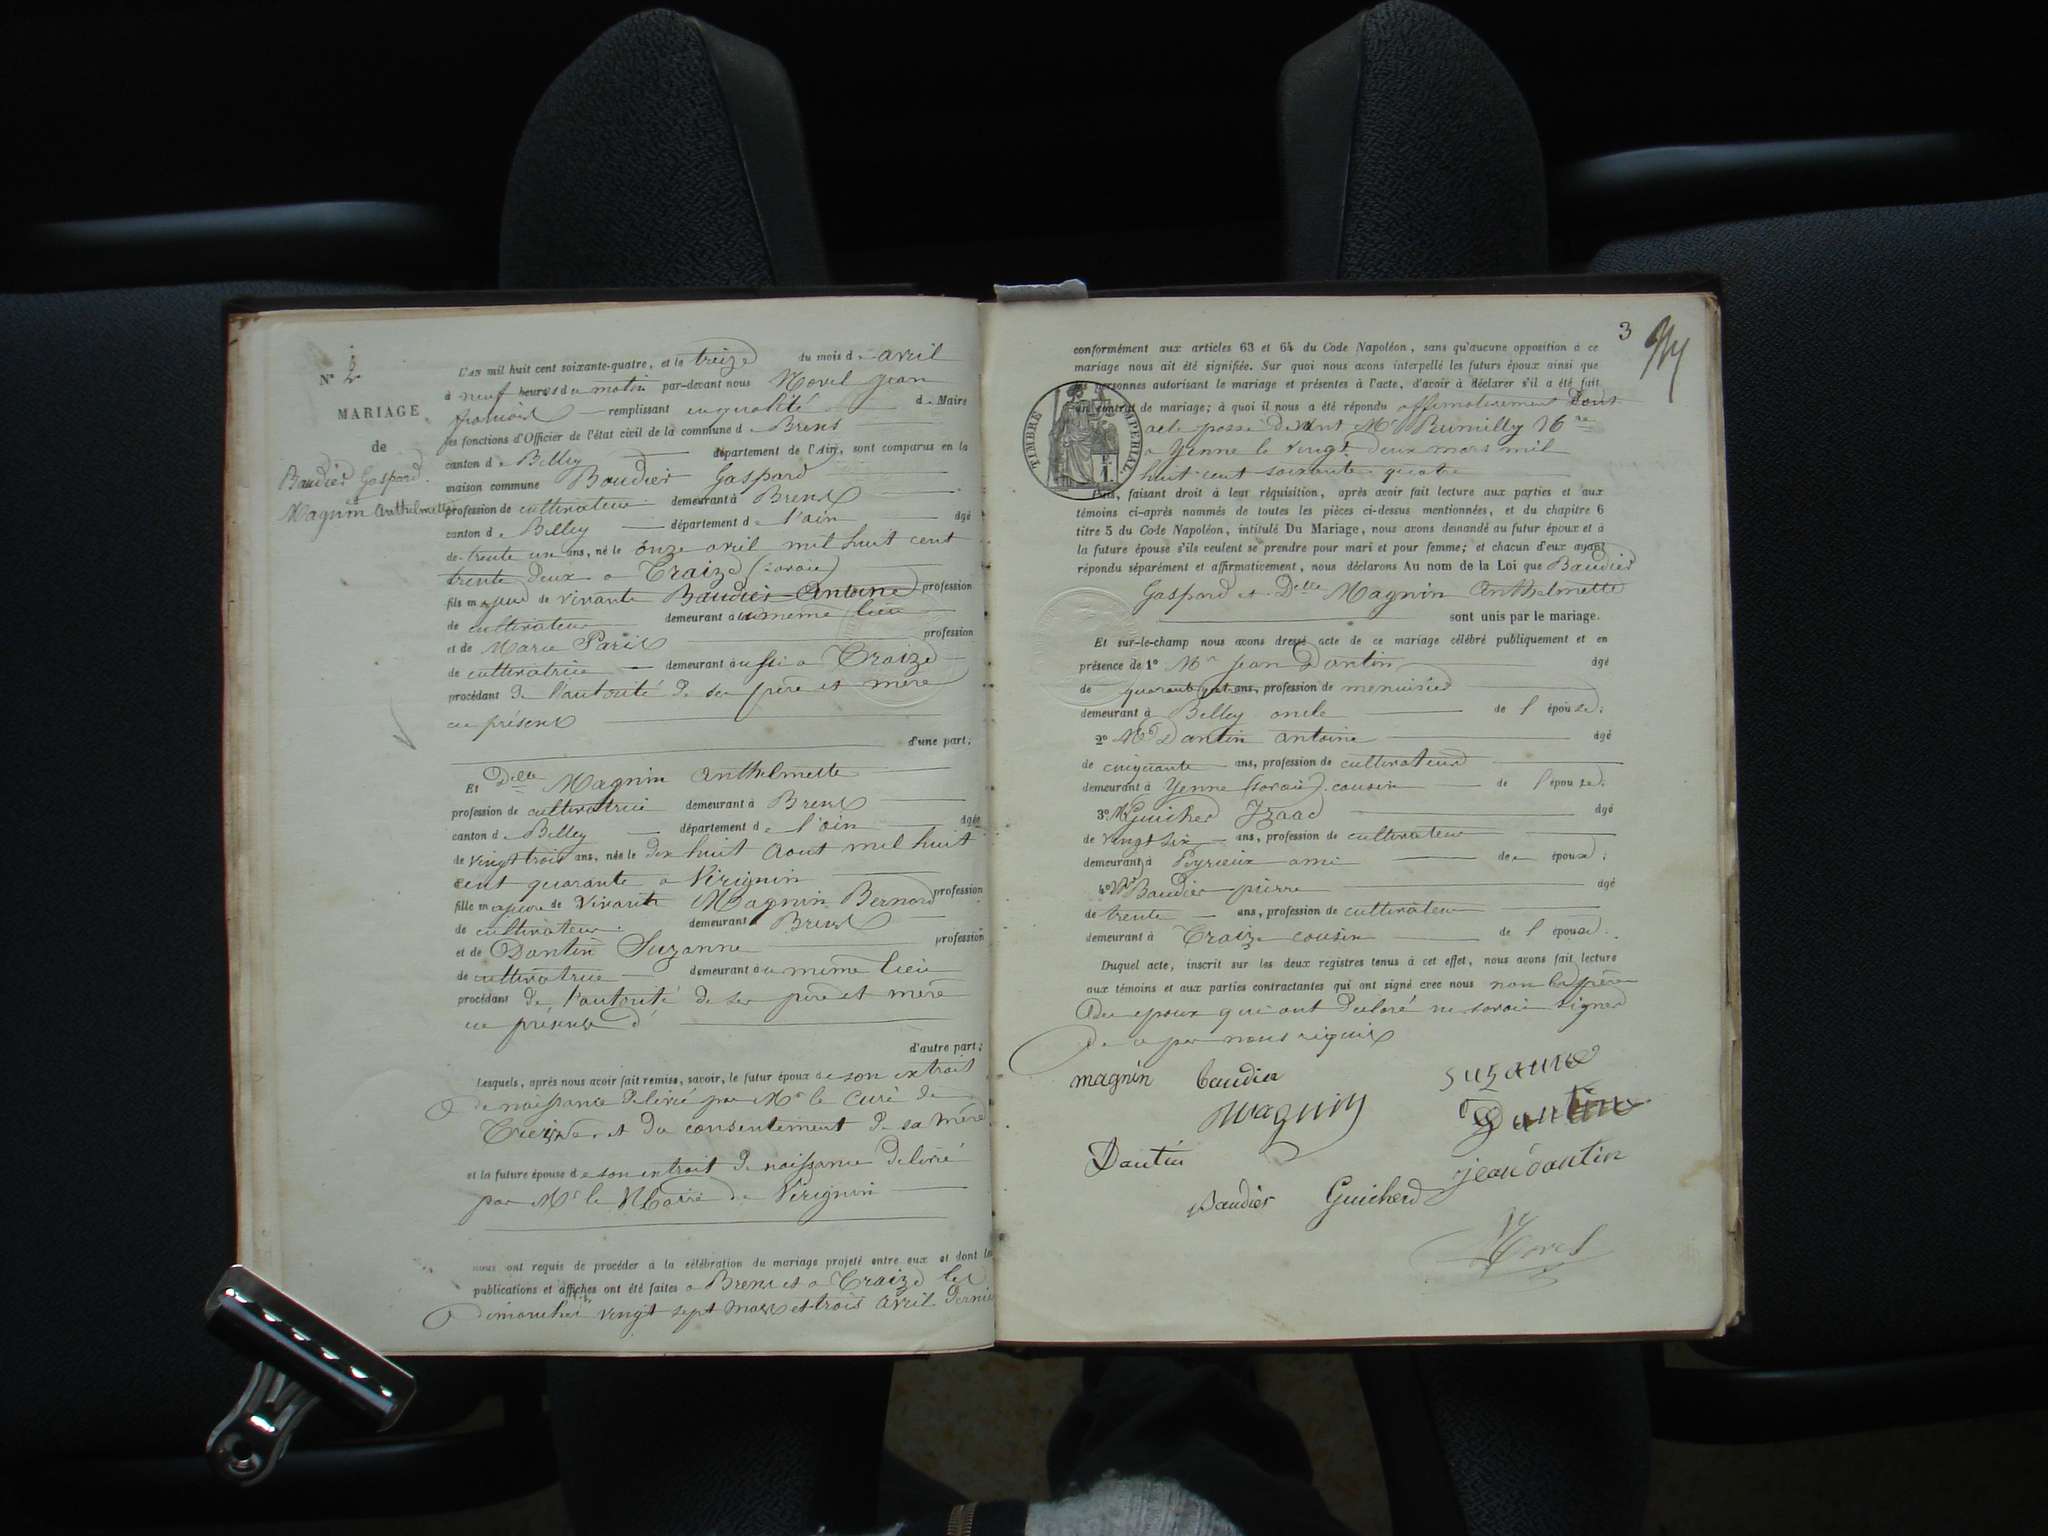 N° 2
MARIAGE
de
Baudier Gaspard
Magnin Anthelmette
L'AN mil huit cent soixante-quatre, et le treize du mois d avril
à neuf heures du matin par-devant nous Morel jean
françois remplissant en qualité de Maire
les fonctions d'Officier de l'état civil de la commune de Brens
canton de Belley département de l'Ain, sont comparus en la
maison commune Baudier Gaspard
profession de cultivateur demeurant à Brens
canton de Belley département de l'ain âgé
de trente un ans, né le onze avril mil huit cent
trente deux a Traize (savoie)
fils majeur de vivants Baudier Antoine profession
de cultivateur demeurant au meme lieu
et de Marie Paris profession
de cultivatrice demeurant aussi a Traize
procédant de l'autorité de ses père et mère
ci présent
d'une part;
Et Delle Magnin anthelmette
profession de cultivatrice demeurant à Brens
canton de Belley département de l'ain âgée
de vingt trois ans, née le dix huit Aout mil huit
cent quarante a Virignin
fille majeure de vivants Magnin Bernard profession
de cultivateur demeurant Brens
et de Dantin Suzanne profession
de cultivatrice demeurant au meme lieu
procédant de l'autorité de ses père et mère
ci présents
d'autre part;
Lesquels, après nous avoir fait remise, savoir, le futur époux de son extrait
de naissance délivré par Mr le Curé de
Traize et du consentement de sa mère
et la future épouse de son extrait de naissance délivré
par Mr le Maire de Virignin
nous ont requis de procéder à la célébration du mariage projeté entre eux et dont les
publications et affiches ont été faites a Brens et a Traize les
dimanches vingt sept mars et trois avril dernier
3
conformément aux articles 63 et 64 du Code Napoléon, sans qu'aucune opposition à ce
mariage nous ait été signifiée. Sur quoi nous avons interpellé les futurs époux ainsi que
les personnes autorisant le mariage et présentes à l'acte, d'avoir à déclarer s'il a été fait
un contrat de mariage; à quoi il nous a été répondu affirmativement dont
acte passé devant Me Rumilly
a Yenne le vingt deux mars mil
huit cent soixante quatre
TIMBRE IMPERIAL
F. 1
Puis, faisant droit à leur réquisition, après avoir fait lecture aux parties et aux
témoins ci-après nommés de toutes les pièces ci-dessus mentionnées, et du chapitre 6
titre 5 du Code Napoléon, intitulé Du Mariage, nous avons demandé au futur époux et à
la future épouse s'ils veulent se prendre pour mari et pour femme; et chacun d'eux ayant
répondu séparément et affirmativement, nous déclarons Au nom de la Loi que Baudier
Gaspard et Delle Magnin Anthelmette
sont unis par le mariage.
Et sur-le-champ nous avons dressé acte de ce mariage célébré publiquement et en
présence de 1° Mr Jean Dantin âgé
de quarante ans, profession de menuisier
demeurant à Belley oncle de l'épouse;
2° Mr Dantin antoine âgé
de cinquante ans, profession de cultivateur
demeurant à Yenne (savoie) cousin de l'épouse;
3° Mr Guicherd Izaac âgé
de vingt six ans, profession de cultivateur
demeurant à Peyrieux ami de épouse;
4° Mr Baudier pierre âgé
de trente ans, profession de cultivateur
demeurant à Traize cousin de l'épouse.
Duquel acte, inscrit sur les deux registres tenus à cet effet, nous avons fait lecture
aux témoins et aux parties contractantes qui ont signé avec nous non les père
de epoux qui ont déclaré ne savoir signer
de ce par nous requis
magnin baudier suzanne
magnin Dantin
Dantin jean dantin
Baudier Guicherd
Morel